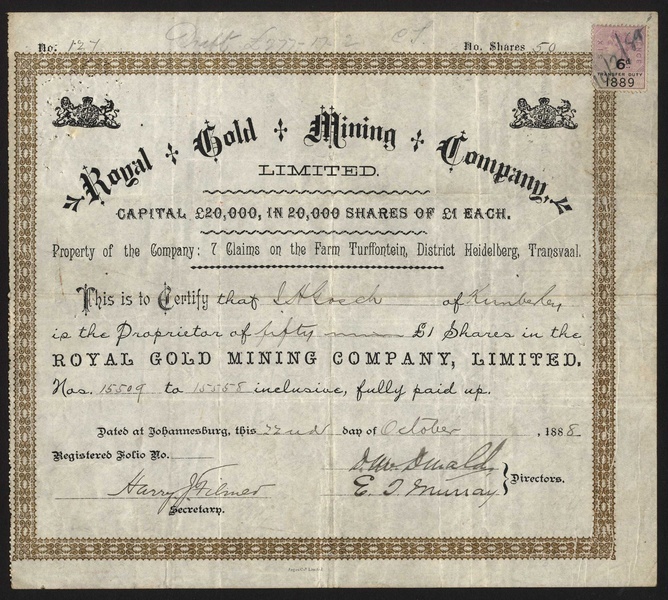 No. 127 Draft No. Shares 50
6d
TRANSFER DUTY
1889
Royal Gold Mining Company,
LIMITED.
CAPITAL £20,000, IN 20,000 SHARES OF £1 EACH.
Property of the Company: 7 Claims on the Farm Turffontein, District Heidelberg, Transvaal.
This is to Certify that of Kimberley
is the Proprietor of fifty £1 Shares in the
ROYAL GOLD MINING COMPANY, LIMITED.
Nos. 15509 to 15558 inclusive, fully paid up.
Dated at Johannesburg, this 22nd day of October, 1888
Registered Folio No.
Harry J. Filmer
Secretary.
E. T. Murray
Directors.